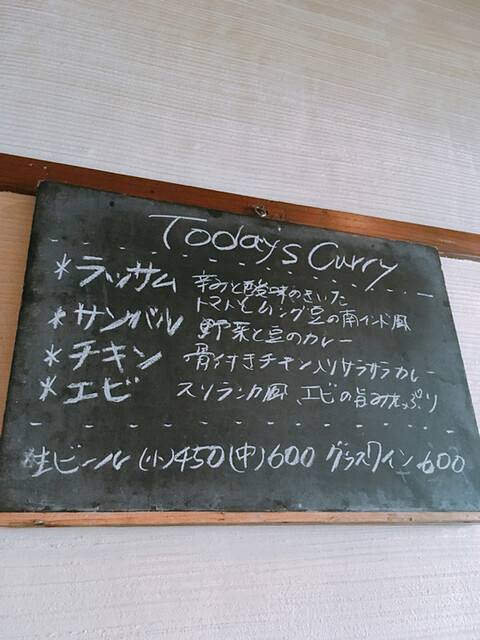 Today's Curry
*ラッサム 辛みと酸味のきいた
トマトとムング豆の南インド風
*サンバル 野菜と豆のカレー
*チキン 骨付きチキン入りサラサラカレー
*エビ スリランカ風、エビの旨みたっぷり
生ビール (小)450(中)600 グラスワイン600